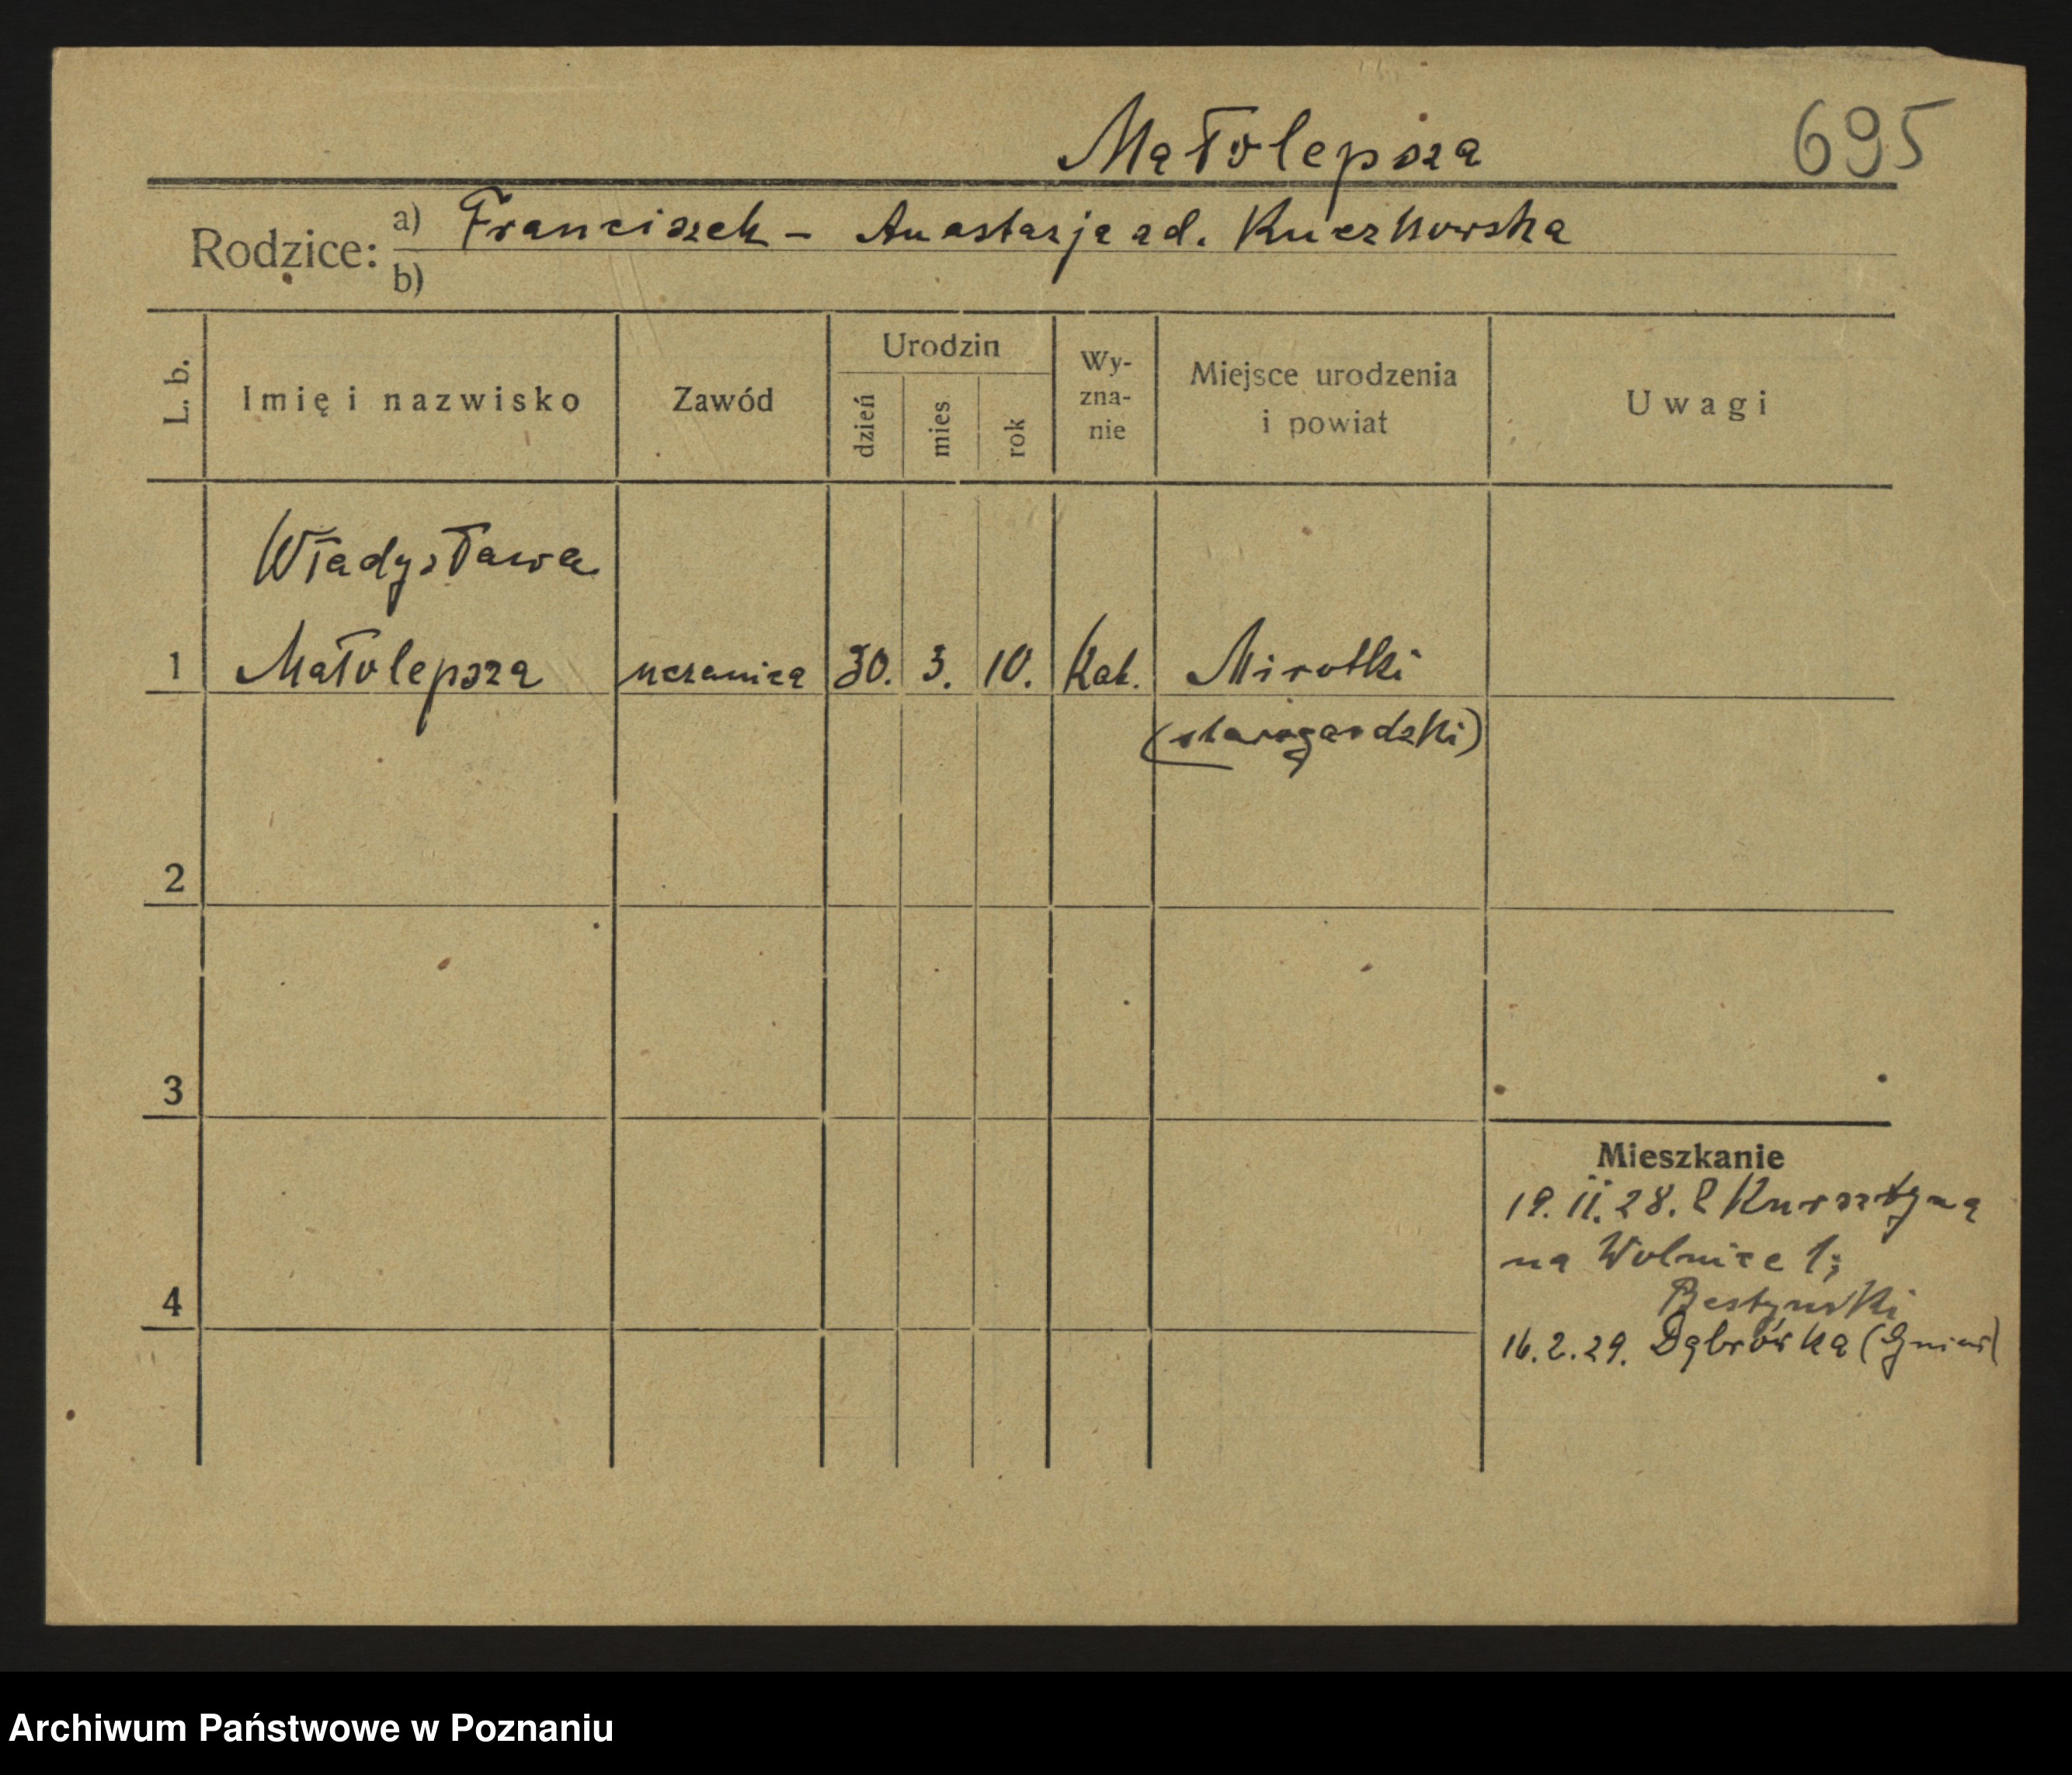 Małolepsza 695
Rodzice: a) Franciszek - Anastazja ad. Kuczkowska
b)
L. b. Imię i nazwisko Zawód Urodzin dzień mies rok Wy-
zna-
nie Miejsce urodzenia
i powiat Uwagi
Władysława
1 Małolepsza uczenica 30. 3. 10. Kat. Mirotki
(starogardzki)
2
3
Mieszkanie
19. II. 28. z Kursztyna
na Wolnice 1;
4
16. 2. 29. Dąbrówka (Gniew)
Archiwum Państwowe w Poznaniu